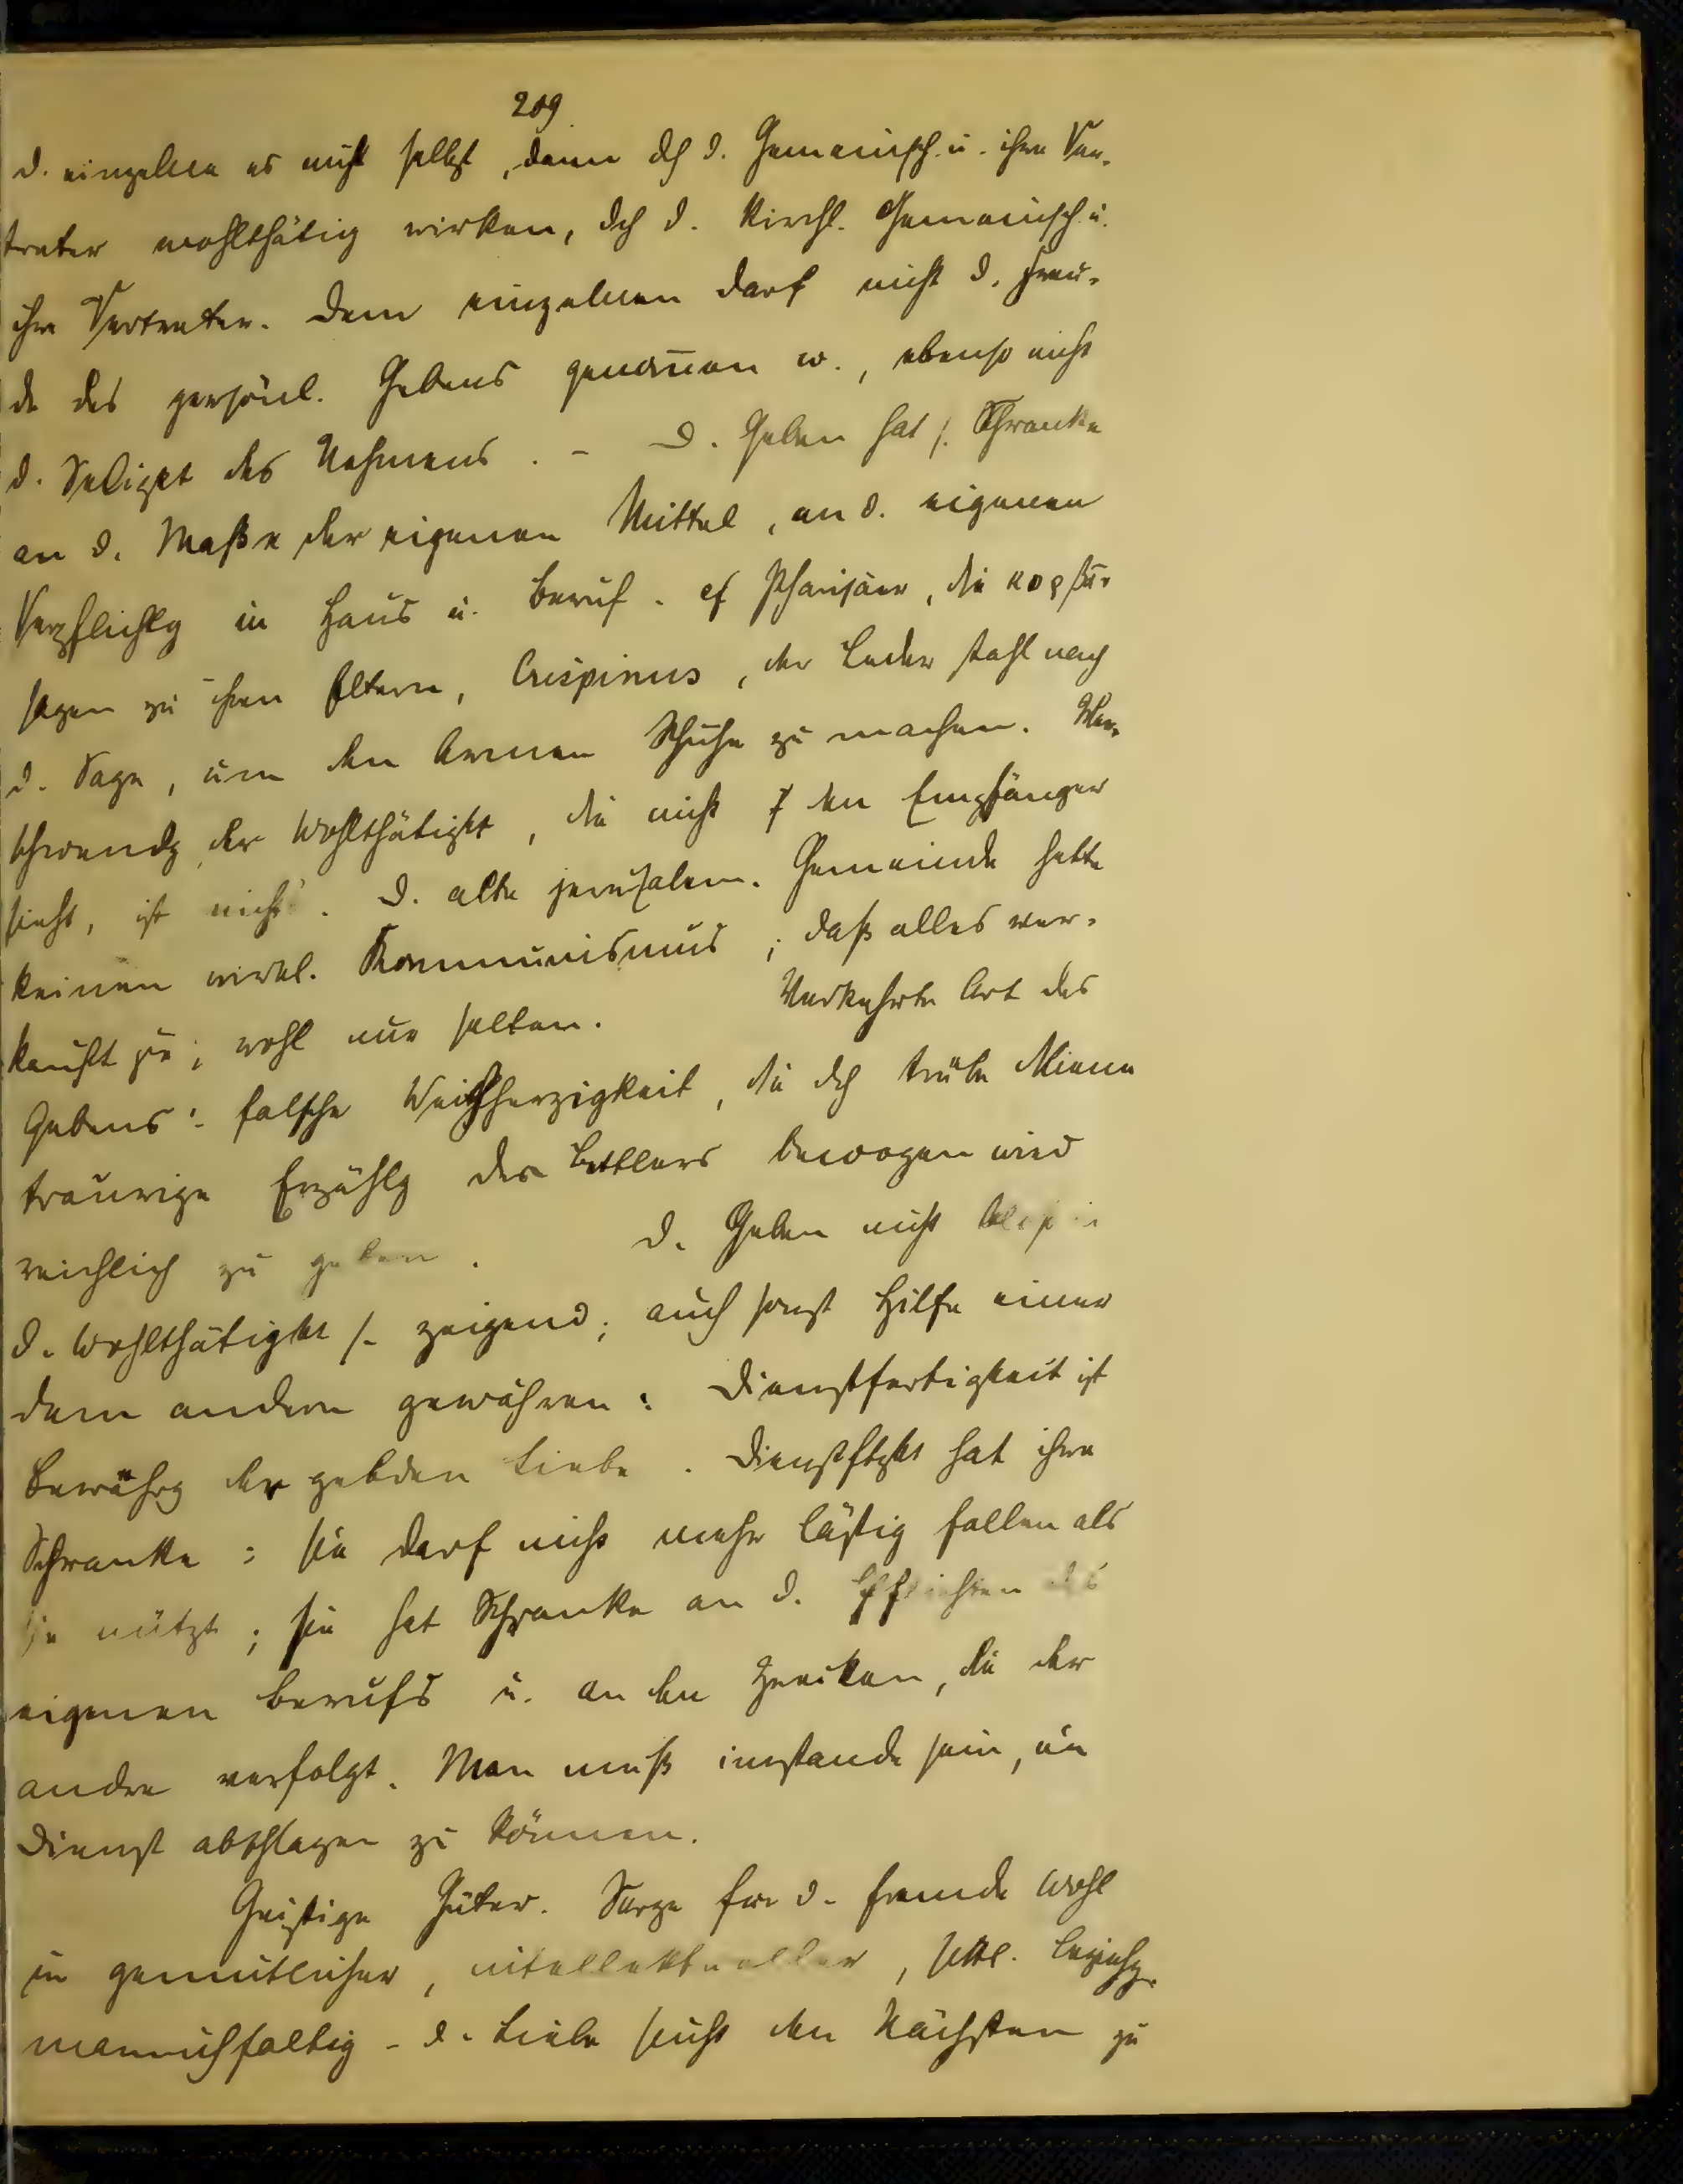 209
d. einzelne es nicht selbst, dann dch d. Gemeinsch. u. ihre Ver-
treter wohlthätig wirken, dch d. kirchl. Gemeinsch. u.
ihre Vertreter. Dem einzelnen darf nicht d. Freu-
de des persönl. Gebens genom̅en w., ebenso nicht
d. Seligkt des Nehmens. – D. Geben hat s. Schranke
an d. Maße der eigenen Mittel, an d. eigenen
Verpflichtg in Haus u. Beruf. cf Pharisäer, die
sagen zu ihren Eltern, Crispinus, der Leder stahl nach
d. Sage, um den Armen Schuhe zu machen. Ver-
schwendg der Wohlthätigkt, die nicht den Empfänger
sieht, ist nichts. D. alte jerusalem. Gemeinde hatte
keinen wirkl. Kommunismus; daß alles ver-
kauft sei, wohl nur selten. Verkehrte Art des
Gebens: falsche Weichherzigkeit, die dch trübe Miene
traurige Erzählg des Bettlers bewogen wird
reichlich zu geben. D. Geben nicht bloß in
d. Wohlthätigkt s. zeigend; auch sonst Hilfe einer
dem andern gewähren: Dienstfertigkeit ist
Bewährg der gebden Liebe. Dienstftgkt hat ihre
Schranke: sie darf nicht mehr lästig fallen als
sie nützt; sie hat Schranke an d. Pflichten des
eigenen Berufs u. an den Zwecken, die der
andre verfolgt. Man muß imstande sein, ein
Dienst abschlagen zu können.
Geistige Güter. Sorge für d. fremde Wohl
in gemütlicher, intellektueller, sittl. Beziehg.
mannichfaltig – d. Liebe sucht den Nächsten zu